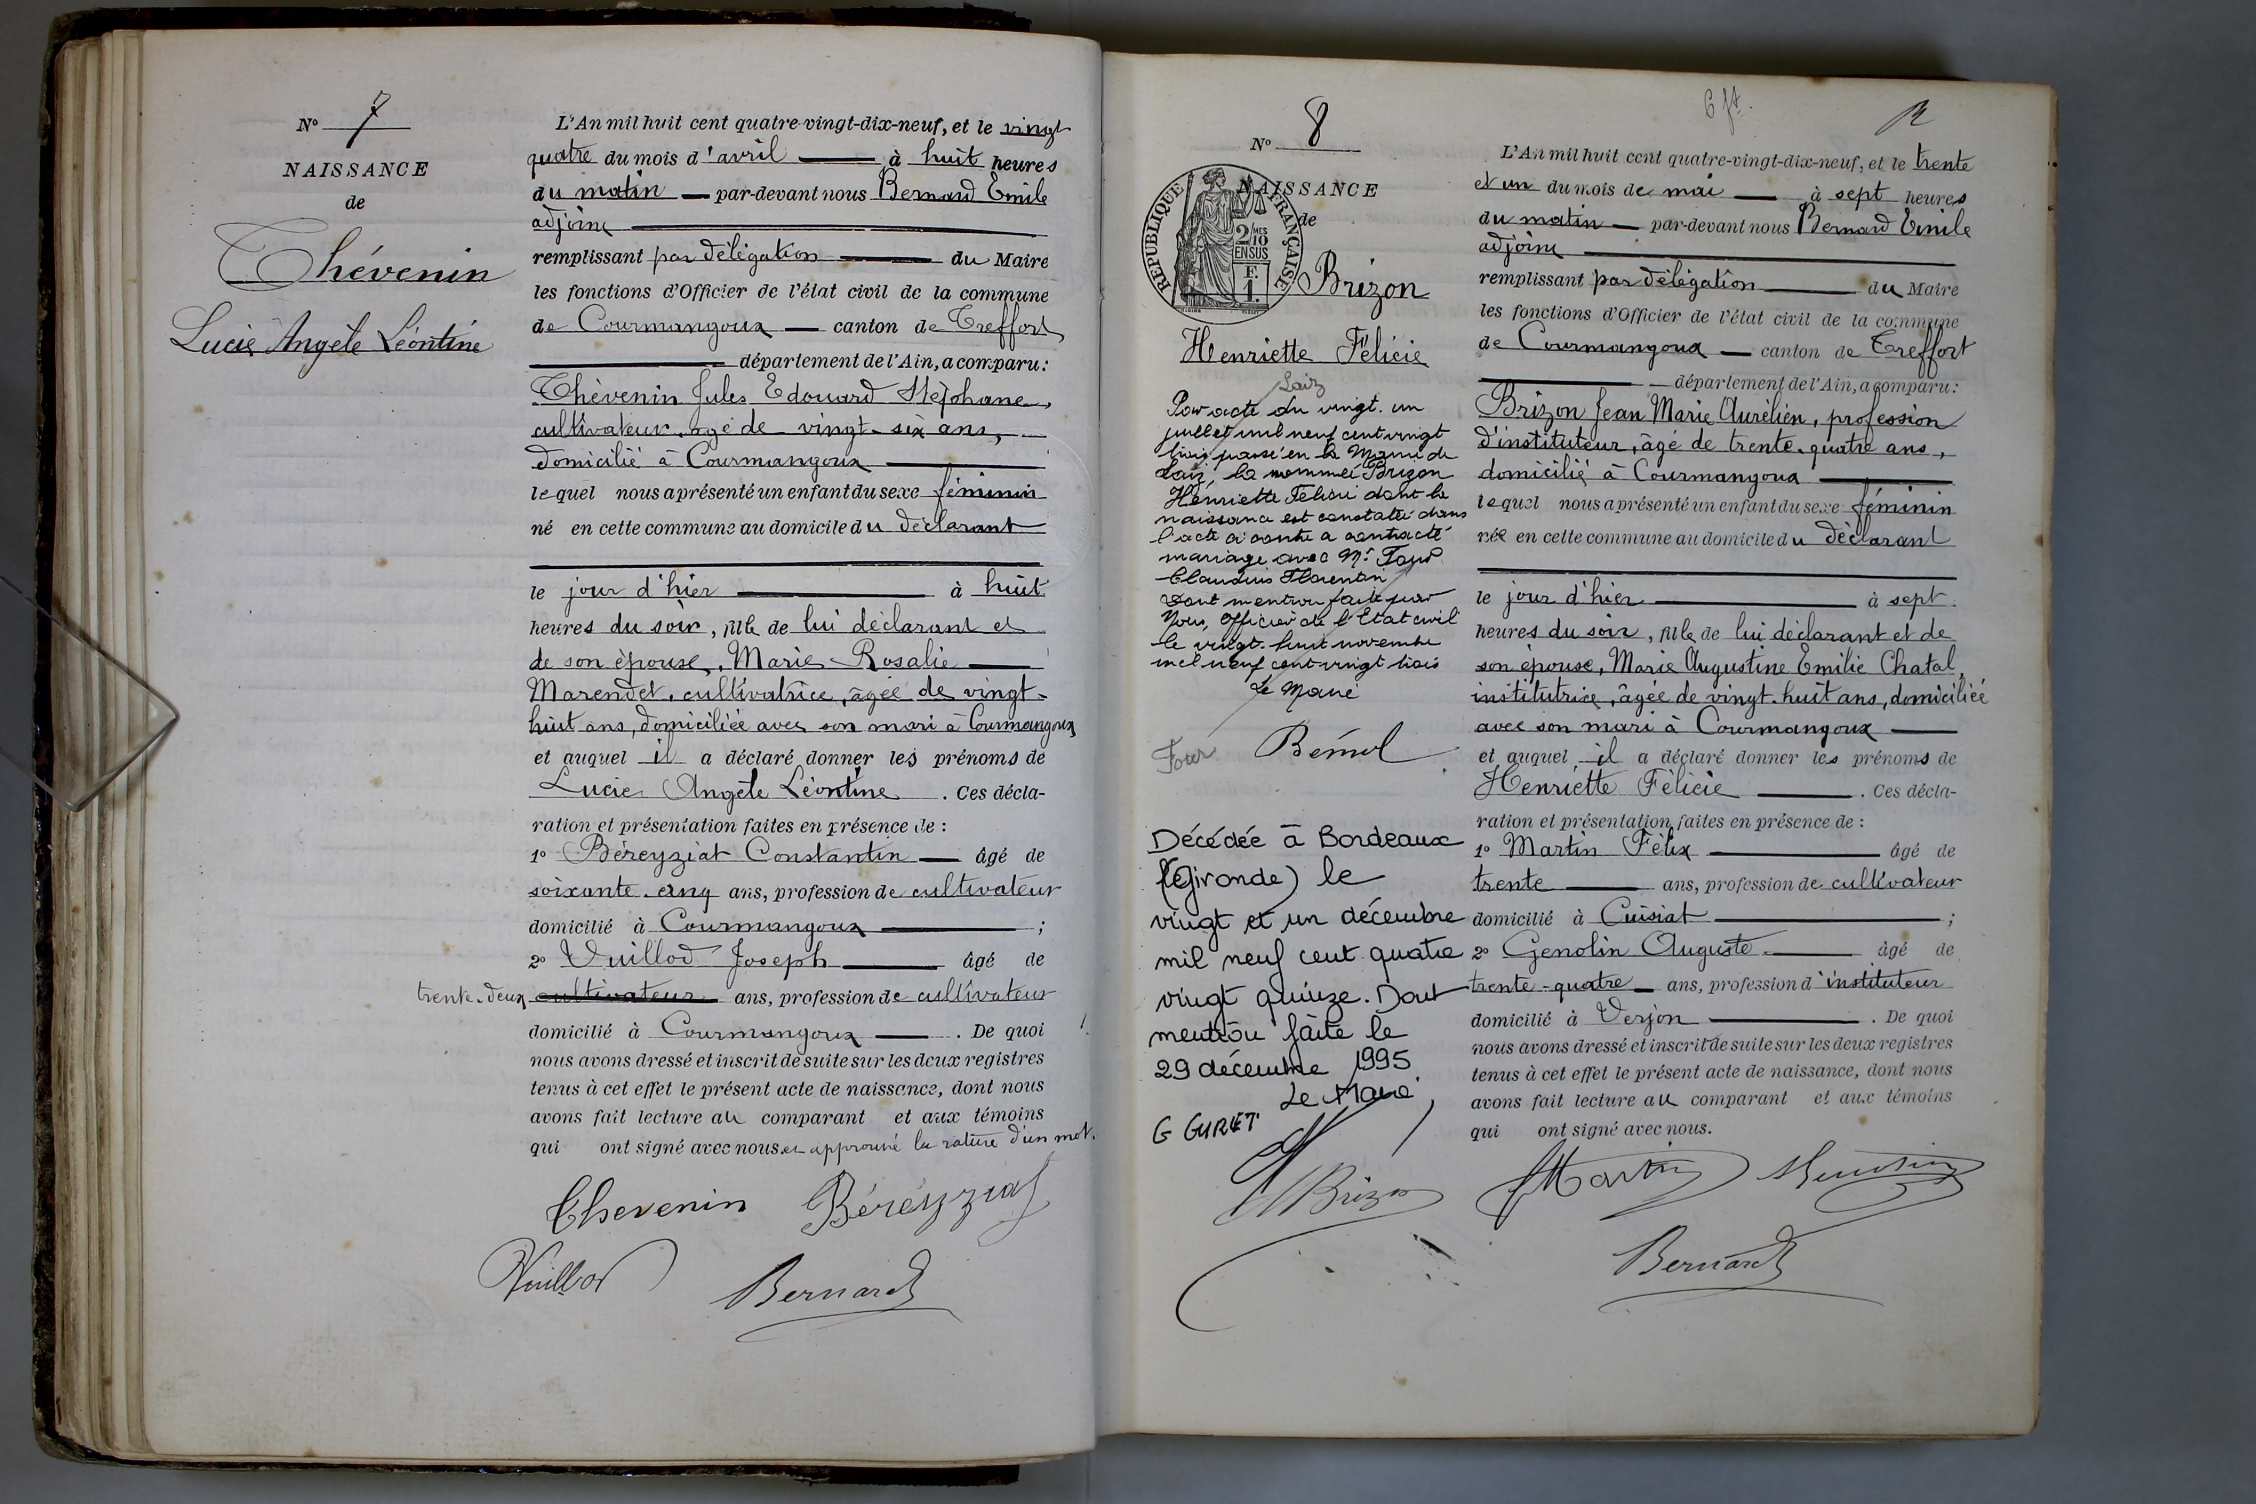 N° 7
NAISSANCE
de
Thévenin
Lucie Angèle Léontine
L'An mil huit cent quatre-vingt-dix-neuf, et le vingt
quatre du mois d'avril à huit heures
du matin par-devant nous Bernard Emile
adjoint
remplissant par délégation du Maire
les fonctions d'Officier de l'état civil de la commune
de Courmangoux canton de Treffort
département de l'Ain, a comparu:
Thévenin Jules Edouard Stéphane,
cultivateur, âgé de vingt-six ans,
domicilié à Courmangoux
lequel nous a présenté un enfant du sexe féminin
né en cette commune au domicile du déclarant
le jour d'hier à huit
heures du soir, fille de lui déclarant et
de son épouse, Marie Rosalie
Marendet, cultivatrice, âgée de vingt-
huit ans, domiciliée avec son mari à Courmangoux
et auquel il a déclaré donner les prénoms de
Lucie Angèle Léontine. Ces décla-
ration et présentation faites en présence de :
1° Béreyziat Constantin âgé de
soixante-cinq ans, profession de cultivateur
domicilié à Courmangoux ;
2° Vuillod Joseph âgé de
trente-deux cultivateur ans, profession de cultivateur
domicilié à Courmangoux. De quoi
nous avons dressé et inscrit de suite sur les deux registres
tenus à cet effet le présent acte de naissance, dont nous
avons fait lecture au comparant et aux témoins
qui ont signé avec nous et approuvé la rature d'un mot.
Thevenin Béréyziat
Vuillod Bernard
6 ft.
N° 8
NAISSANCE
de
REPUBLIQUE FRANÇAISE
2/10 MES
EN SUS
F.
1.
Brizon
Henriette Félicie
Laiz
Par acte du vingt-un
juillet mil neuf cent vingt
trois passé en la Mairie de
Laiz, la nommée Brizon
Henriette Félicie dont la
naissance est constatée dans
l'acte ci contre a contracté
mariage avec Mr Four
Claudius Florentin
Dont mention faite par
Nous, Officier de l'Etat civil
le vingt-huit novembre
mil neuf cent vingt trois
Le Maire
Four
Décédée à Bordeaux
(Gironde) le
vingt et un décembre
mil neuf cent quatre
vingt quinze. Dont
mention faite le
29 décembre 1995
Le Maire,
L'An mil huit cent quatre-vingt-dix-neuf, et le trente
et un du mois de mai à sept heures
du matin par-devant nous Bernard Emile
adjoint
remplissant par délégation du Maire
les fonctions d'Officier de l'état civil de la commune
de Courmangoux canton de Treffort
département de l'Ain, a comparu:
Brizon Jean Marie Aurélien, profession
d'instituteur, âgé de trente-quatre ans,
domicilié à Courmangoux
lequel nous a présenté un enfant du sexe féminin
née en cette commune au domicile du déclarant
le jour d'hier à sept
heures du soir, fille de lui déclarant et de
son épouse, Marie Augustine Emilie Chatal,
institutrice, âgée de vingt-huit ans, domiciliée
avec son mari à Courmangoux
et auquel il a déclaré donner les prénoms de
Henriette Félicie. Ces décla-
ration et présentation faites en présence de :
1° Martin Félix âgé de
trente ans, profession de cultivateur
domicilié à Cuisiat ;
2° Genolin Auguste âgé de
trente-quatre ans, profession d'instituteur
domicilié à Verjon. De quoi
nous avons dressé et inscrit de suite sur les deux registres
tenus à cet effet le présent acte de naissance, dont nous
avons fait lecture au comparant et aux témoins
qui ont signé avec nous.
Brizon Martin
Bernard